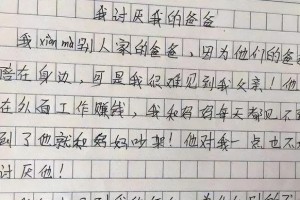 我讨厌我的爸爸
我xiàn mù别人家的爸爸，因为他们的爸爸
陪在身边，可是我很难见到我父亲！他
在外面工作赚钱，我和妈妈每天都见不
到了他就和妈妈吵架！他对我一点也不
讨厌他！